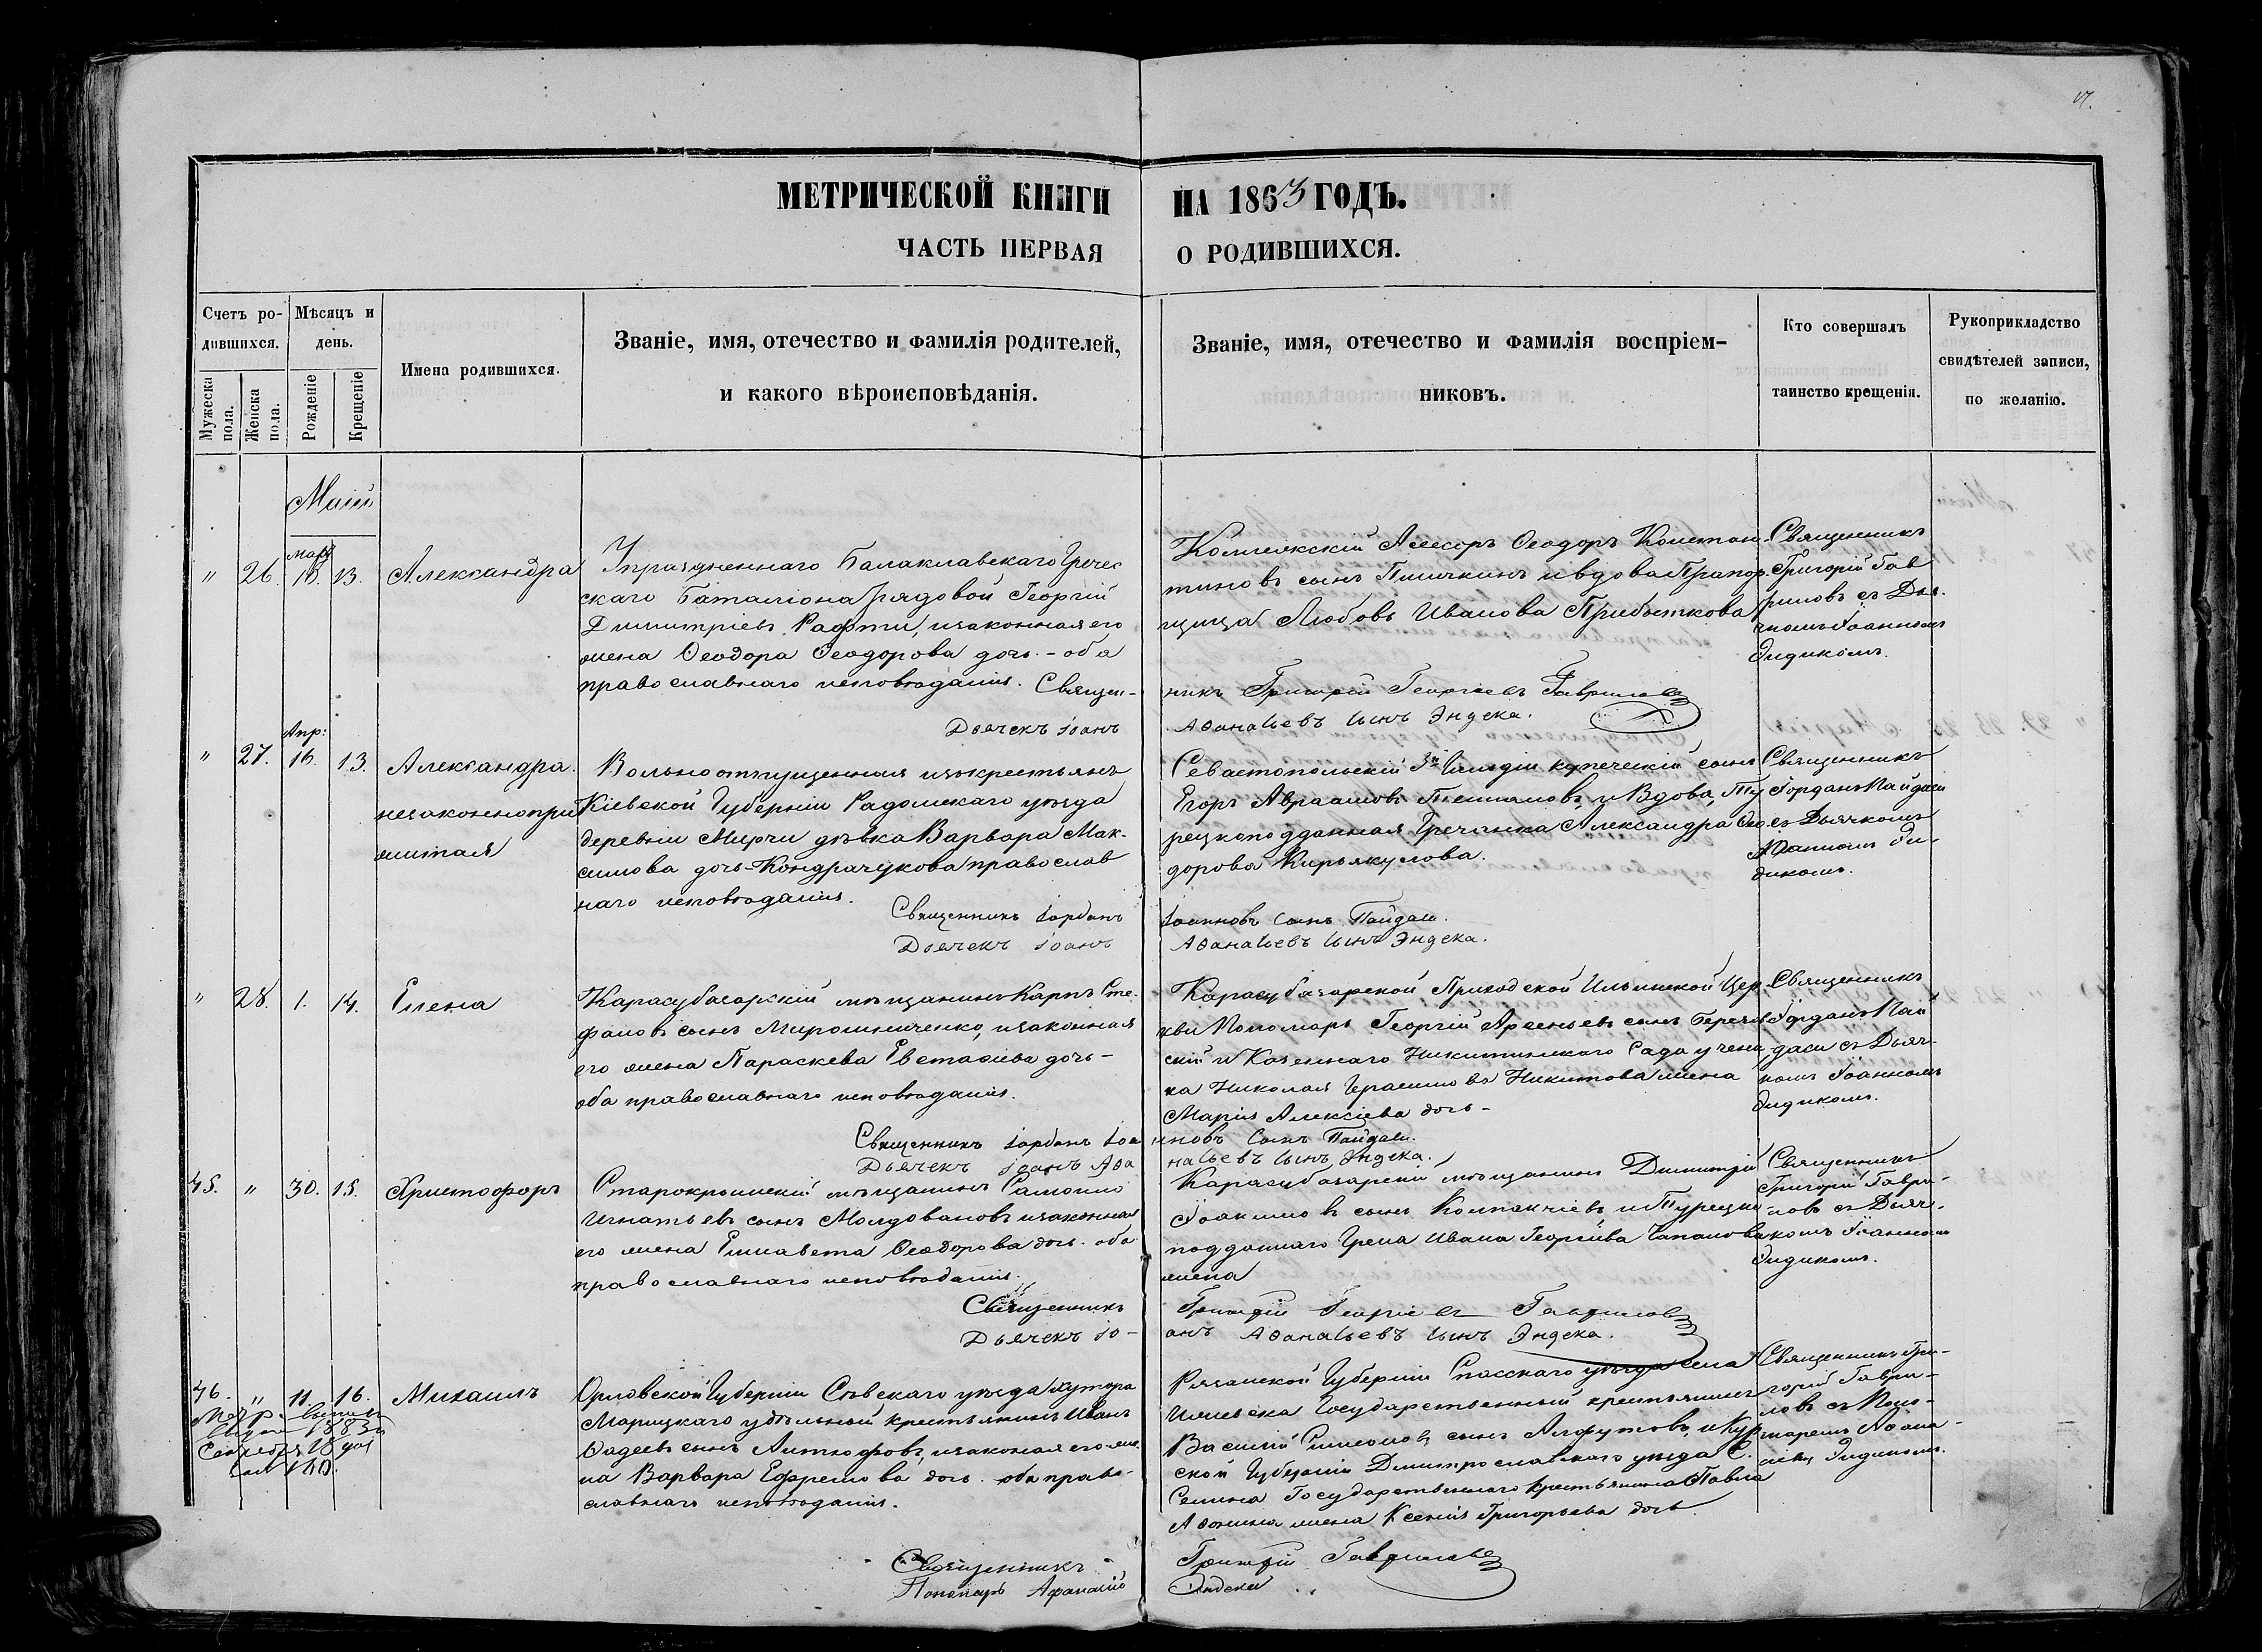 17.
МЕТРИЧЕСКОЙ КНИГИ НА 1863 ГОДЪ.
ЧАСТЬ ПЕРВАЯ О РОДИВШИХСЯ.
Счетъ ро-
дившихся.
Мужеска пола.
Женска пола.
Мѣсяцъ и
день.
Рожденіе
Крещеніе
Имена родившихся.
Званіе, имя, отечество и фамилія родителей,
и какого вѣроисповѣданія.
Званіе, имя, отечество и фамилія воспріем-
никовъ.
Кто совершалъ
таинство крещенія.
Рукоприкладство
свидѣтелей записи,
по желанію.
Маій
" 26. 13. Александра
Упраздненнаго Балаклавскаго Гречес
скаго Баталіона рядовой Георгій
Димитріевъ Рафти, изаконная его
жена Ѳеодора Ѳеодорова дочь - оба
православнаго исповѣданія.
Коллежскій Асесоръ Ѳеодоръ Констан-
тиновъ сынъ Пшичкинъ и вдова Прапор-
щица Любовь Иванова Прибыткова
Священникъ
Григорій Гав
риловъ съ Дья-
чкомъ Іоанномъ
Эндикомъ.
Священ-
никъ Григорій Георгіевъ Гавриловъ
Дьячекъ Іоанъ Аѳанасьевъ сынъ Эндека.
Апр:
" 27. 16. 13. Александра
незаконнопри
житая
Вольноотпущенная изъкрестьянъ
Кіевской Губерніи Радомскаго уѣзда
деревни Мирчи дѣвка Варвара Мак-
симова дочь Кондрачукова православ
наго исповѣданія.
Севастопольскій 3й Гильдіи купеческій сынъ
Егоръ Авраамовъ и Вдова, Ту
рецкоподданная Гречанка Александра Ѳео
дорова Кирьякулова.
Священникъ
Іорданъ Пайдаси
съ Дьячкомъ
Іоанномъ Эн-
дикомъ.
Священникъ Іорданъ Іоанновъ сынъ Пайдаси.
Дьячекъ Іоанъ Аѳанасьевъ сынъ Эндека.
" 28. 1. 14. Елена
Карасубазарскій мѣщанинъ Карпъ Сте-
фановъ сынъ Мирошниченко, изаконная
его жена Параскева Евстафіева дочь -
оба православнаго исповѣданія.
Карасубазарской Приходской Ильинской Цер
кви Пономарь Георгій Арсеньевъ сынъ
скій и Казеннаго Никитинскаго Сада учени
ка Николая Герасимова Никитова жена
Марія Алексіева дочь -
Священникъ
Іорданъ Пай
даси съ Дьяч-
комъ Іоанномъ
Эндикомъ.
Священникъ Іорданъ Іоанновъ сынъ Пайдаси.
Дьячекъ Іоанъ Аѳанасьевъ сынъ Эндека.
45. " 30. 15. Христофоръ
Старокрымскій мѣщанинъ
Игнатьевъ сынъ Молдовановъ изаконная
его жена Елисавета Ѳеодорова дочь. оба
православнаго исповѣданія.
Карасубазарскій мѣщанинъ Димитрій
Іоакимовъ сынъ Компакчіевъ, и Турецко
подданнаго Грека Ивана Георгіева
жена
Священникъ
Григорій Гаври-
ловъ съ Дьяч-
комъ Іоанномъ
Эндикомъ.
Священникъ Григорій Георгіевъ Гавриловъ
Дьячекъ Іо-
анъ Аѳанасьевъ сынъ Эндека.
46. " 11. 16. Михаилъ
1883
Сентября 18
Орловской Губерніи Сѣвскаго уѣзда хутора
Марицкаго удѣльный крестьянинъ Иванъ
Ѳадеевъ сынъ Антюфовъ, изаконая его же-
на Варвара Ефремова дочь. оба право-
славнаго исповѣданія.
Рязанской Губерніи Спасскаго уѣзда села
Ижевска Государственный крестьянинъ
Василій Симеоновъ сынъ Алфутовъ, и Кур
ской Губерніи Дмитрославскаго уѣзда С.
Селина Государственнаго крестьянина Павла
Аѳонина жена Ксенія Григорьева дочь
Священникъ Гри-
горій Гаври-
ловъ съ Поно-
маремъ Аѳана-
Эндикомъ.
Священникъ Григорій Гавриловъ
Пономарь Афанасій Эндека